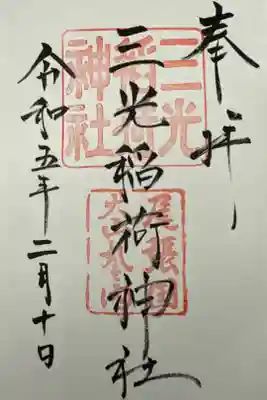 奉拝
三光稲荷神社
令和五年二月十日
三光
稲荷
神社
尾張国
犬山